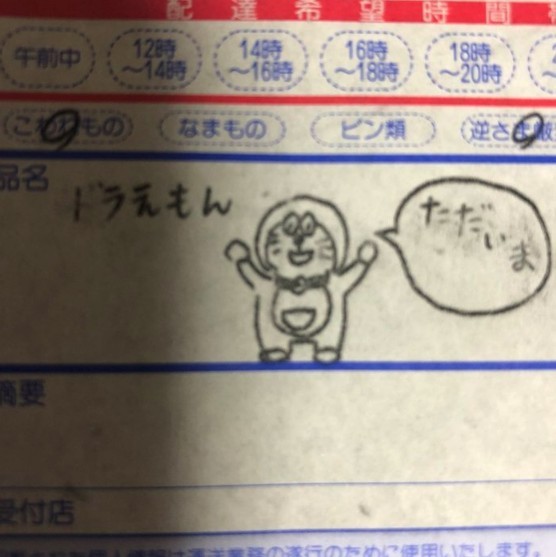 配達希望時間
午前中 12時～14時 14時～16時 16時～18時 18時～20時
こわれもの なまもの ビン類 逆さま厳
品名 ドラえもん
ただいま
摘要
受付店
個人情報は運送業務の遂行のために使用いたします。